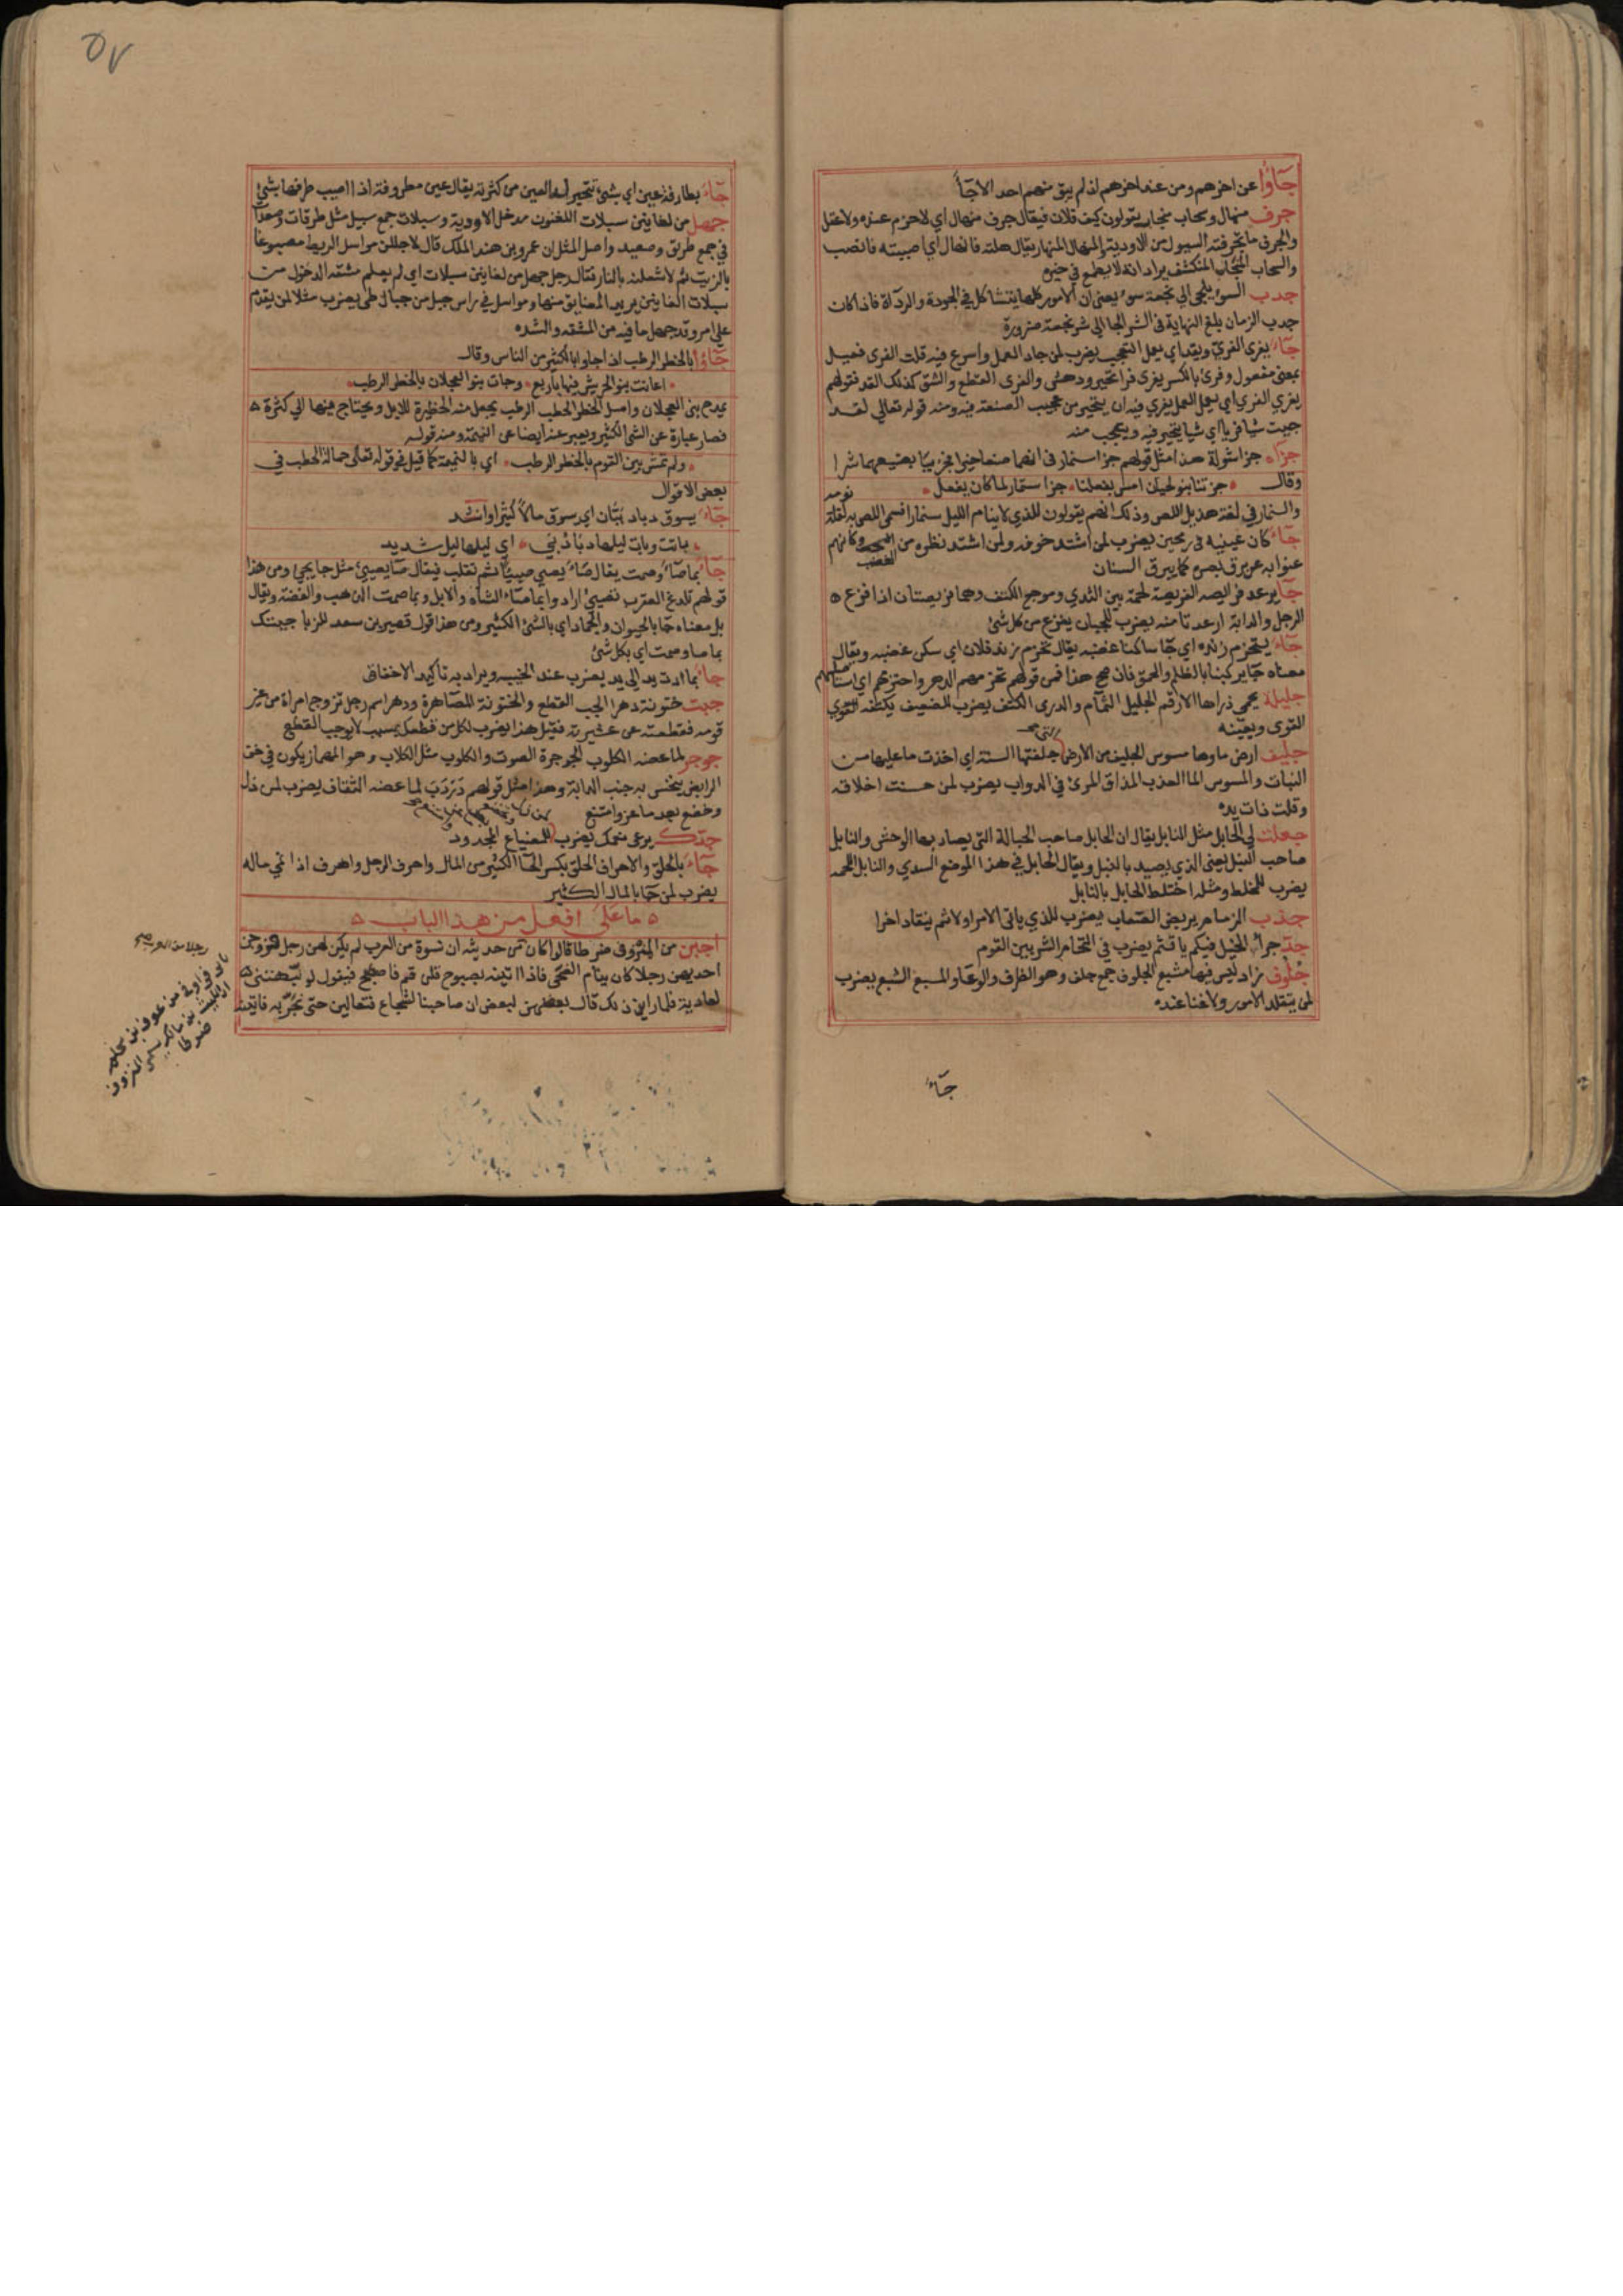 جَآؤُا عن اخرهم ومن عند اخرهم اذ لم يبق منهم احد الا جَآءَ
جرف منهال وسحاب منجاب يقولون كيف فلان فيقال جرف منهال اي لا حزم عنده ولا عقل
والجرف ما تجرفته السيول من الاودية والمنهال المنهار يقال هلته فانهال اي صببته فانصب
والسحاب المنجاب المنكشف يراد انه لا يطمع في خيره
جدب السوء يلجي الي نجعة سوء يعني ان الامور كلها يتشاكل في الجودة والرداة فاذا كان
جدب الزمان يبلغ النهاية في الشر الجا الي شر نجعة ضرورة
جَآءَ يفري الفري ويقد اي يعمل العجب يضرب لمن جاد العمل واسرع فيه قلت الفري فعيل
بمعني مفعول وفري بالكسر يفري فرا تحير ودهش والفري القطع والشق كذلك القد فقولهم
يفري الفري اي يعمل العمل يفري فيه اي يتحير من عجيب الصنعة فيه ومنه قوله تعالي لقد
جيت شيا فريا اي شيا يتحير فيه ويتعجب منه
جزاء جزا شولة هذا مثل قولهم جزا سنمار في انهما صنعا خيرا فجزيا بصنيعهما شرا
وقال جزتنا بنو لحيان امس بفعلنا جزا سنمار بما كان يفعل
والسنمار في لغة هذيل اللص وذلك انهم يقولون للذي لا ينام الليل سنمار فسمي اللص به لقلة نومه
جَآءَ كان عينيه في رمحين يضرب لمن اشتد خوفه ولمن اشتد نظره من الغضب وكانهم
عنوا به عن برق بصره كما يبرق السنان
جَآ يرعد فرايصه الفريصة لحمة بين الثدي ومرجع الكتف وهما فريصتان اذا فزع
الرجل والدابة ارعدتا منه يضرب للجبان يفزع من كل شئ
جَآءَ يتخرم زنده اي جَآ ساكنا غضبه يقال تخرم زند فلان اي سكن غضبه ويقال
معناه جَآ يركبنا بالظلم والحمق فان صح هذا فمن قولهم تخرمهم الدهر واخترمهم اي استاصلهم
جليلة يحمي ذراها الارقم الجليل الثمام والذري الكنف يضرب للضعيف يكنفه القوي
القوي ويعينه
جليف ارض ماوها مسوس الجليف من الارض التي جلفتها السنة اي اخذت ما عليها من
النبات والمسوس الما العذب المذاق المرئ في الدواب يضرب لمن حسنت اخلاقه
وقلت ذات يده
جعلت لي الحابل مثل النابل يقال ان الحابل صاحب الحبالة التي يصاد بها الوحش والنابل
صاحب النبل يعني الذي يصيد بالنبل ويقال الحابل في هذا الموضع السدي والنابل اللحمه
يضرب للمخلط ومثله اختلط الحابل بالنابل
جذب الزمام يريض الصعاب يضرب للذي يابي الامر اولا ثم ينقاد اخرا
جدّ جرآ الخيل فيكم يا قثم يضرب في التحام الشر بين القوم
جُلوف زاد ليس فيها مشبع الجلوف جمع جلف وهو الظرف والوعا والمشبع الشبع يضرب
لمن يتقلد الامور ولا غنا عنده
جَآءَ
جَآءَ بطارفة عين اي بشئ تتحير له العين من كثرته يقال عين مطروفة اذا اصيب طرفها بشئ
جهل من لغانين سبلات اللغنون مدخل الاودية وسبلات جمع سبيل مثل طرقات وصعدات
في جمع طريق وصعيد واصل المثل ان عمرو بن هند الملك قال لاجللن مواسل الريط مصبوغا
بالزيت ثم لاشعلنه بالنار فقال رجل جهل من لغانين سبلات اي لم يعلم مشقة الدخول من
سبلات لغانين يريد المضايق منها ومواسل في راس جبل من جبال طي يضرب مثلا لمن يقدم
علي امر وقد جهل ما فيه من المشقه والشده
جَآؤُا بالحظر الرطب اذا جاوا بالكثير من الناس وقال
اعانت بنو الحريش فيها باربع وجات بنو العجلان بالحظر الرطب
يمدح بني العجلان واصل الحظر الحطب الرطب يجعل منه الحظيرة للابل ويحتاج فيها الي كثرة
فصار عبارة عن الشئ الكثير ويعبر عنه ايضا عن النميمة ومنه قوله
ولم تمش بين القوم بالحظر الرطب اي بالنميمة كما قيل في قوله تعالي حمالة الحطب في
بعض الاقوال
جَآءَ يسوق دباد بيان اي يسوق مالاً كثيرا وانشد
باتت وبات ليلها دبادبي اي ليلها ليل شديد
جَآءَ بما صَآءَ وصمت يقال صَآءَ يصئي صييا ثم تقلب فيقال صا يصيئ مثل جا يجئ ومن هذا
قولهم تلدغ العقرب وتصيئ اراد وابما صَآءَ الشاه والابل وبما صمت الذهب والفضة ويقال
بل معناه جَآ بالحيوان والجماد اي بالشئ الكثير ومن هذا قول قصير بن سعد للزبا جيتك
بما صا وصمت اي بكل شئ
جَآءَ بما ادت يد الي يد يضرب عند الخيبه ويراد به تاكيد الاخفاق
جبت ختونة دهرا الجب القطع والختونة المصاهرة ودهر اسم رجل تزوج امراة من غير
قومه فقطعته عن عشيرته فقيل هذا يضرب لكل من قطعك بسبب لا يوجب القطع
جوجر لما عضه الكلوب الجوجرة الصوت والكلوب مثل الكلاب وهو المهماز يكون في خف
الرايض ينخس به جنب الدابة وهذا مثل قولهم دَردَبَ لما عضه الثقاف يضرب لمن ذل
وخضع بعد ما عز وامتنع
جدّك يرعى نعمك يضرب للمضياع المجدود
جَآءَ بالحلق والاحراف الحلق بكسر الحآ الكثير من المال واحرف الرجل واهرف اذا نمي ماله
يضرب لمن جَآ بالمال الكثير
ما على افعل من هذا الباب
اجبن من المنزوف ضرطا قالوا كان من حديثه ان نسوة من العرب لم يكن لهن رجل فزوجن
احديهن رجلا كان ينام الضحي فاذا اتينه بصبوح قلن قم فاصطبح فيقول لو نبهتنني
لعادية فلما راين ذلك قال بعضهن لبعض ان صاحبنا لشجاع فتعالين حتى نجربه فاتينه